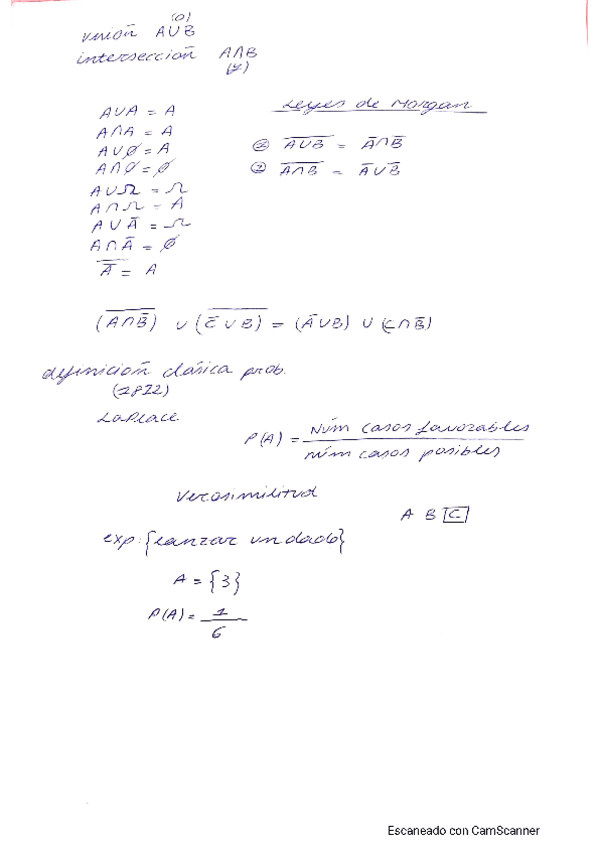 (o)
unión A∪B
intersección A∩B
(y)
A∪A = A
A∩A = A
A∪∅ = A
A∩∅ = ∅
A∪Ω = Ω
A∩Ω = A
A∪A̅ = Ω
A∩A̅ = ∅
A̿ = A
Leyes de Morgan
① \overline{A∪B} = A̅∩B̅
② \overline{A∩B} = A̅∪B̅
(\overline{A∩B̅}) ∪ (\overline{C̅∪B}) = (A̅∪B) ∪ (C∩B̅)
definición clásica prob.
(1812)
LaPlace
P(A) = Núm casos favorables / núm casos posibles
Verosimilitud
A B C
exp: {lanzar un dado}
A = {3}
P(A) = 1 / 6
Escaneado con CamScanner